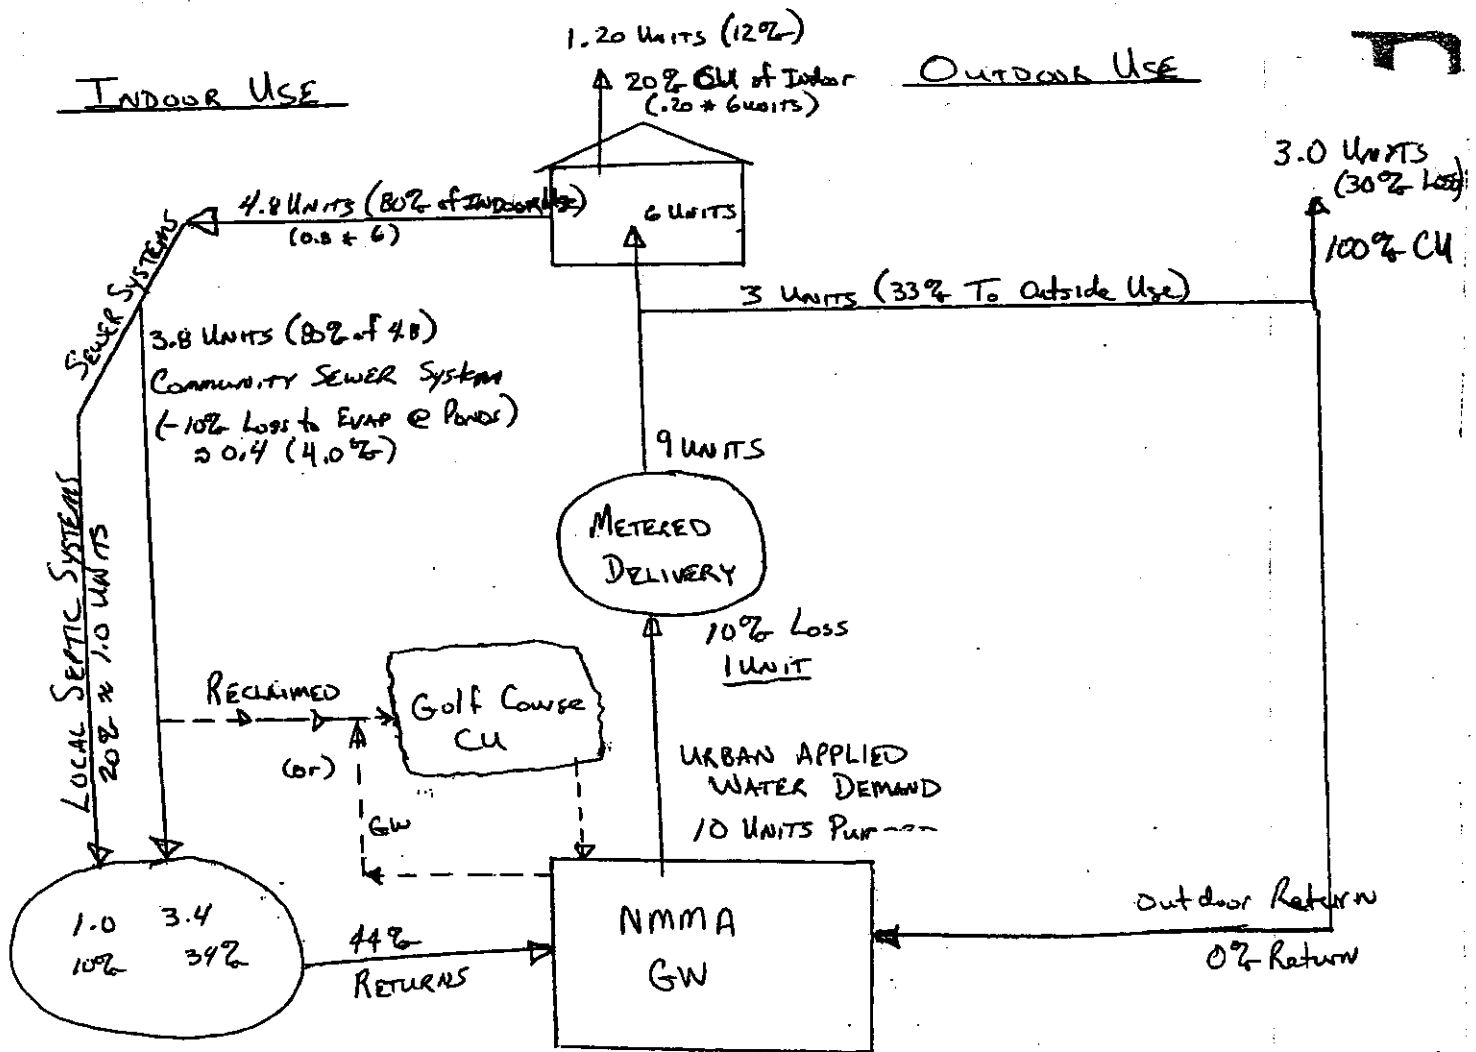 1.20 UNITS (12%)
INDOOR USE
20% CU of Indoor
(.20 * 6 UNITS)
OUTDOOR USE
3.0 UNITS
(30% Loss)
100% CU
4.8 UNITS (80% of INDOOR USE)
(0.8 * 6)
6 UNITS
3 UNITS (33% To Outside Use)
SEWER SYSTEMS
3.8 UNITS (80% of 4.8)
COMMUNITY SEWER SYSTEM
(-10% Loss to EVAP @ PONDS)
≈ 0.4 (4.0%)
9 UNITS
METERED
DELIVERY
10% LOSS
1 UNIT
LOCAL SEPTIC SYSTEMS
20% ≈ 1.0 UNITS
RECLAIMED
(or)
GW
Golf Course
CU
URBAN APPLIED
WATER DEMAND
10 UNITS
1.0 3.4
10% 34%
44%
RETURNS
NMMA
GW
Outdoor Return
0% Return